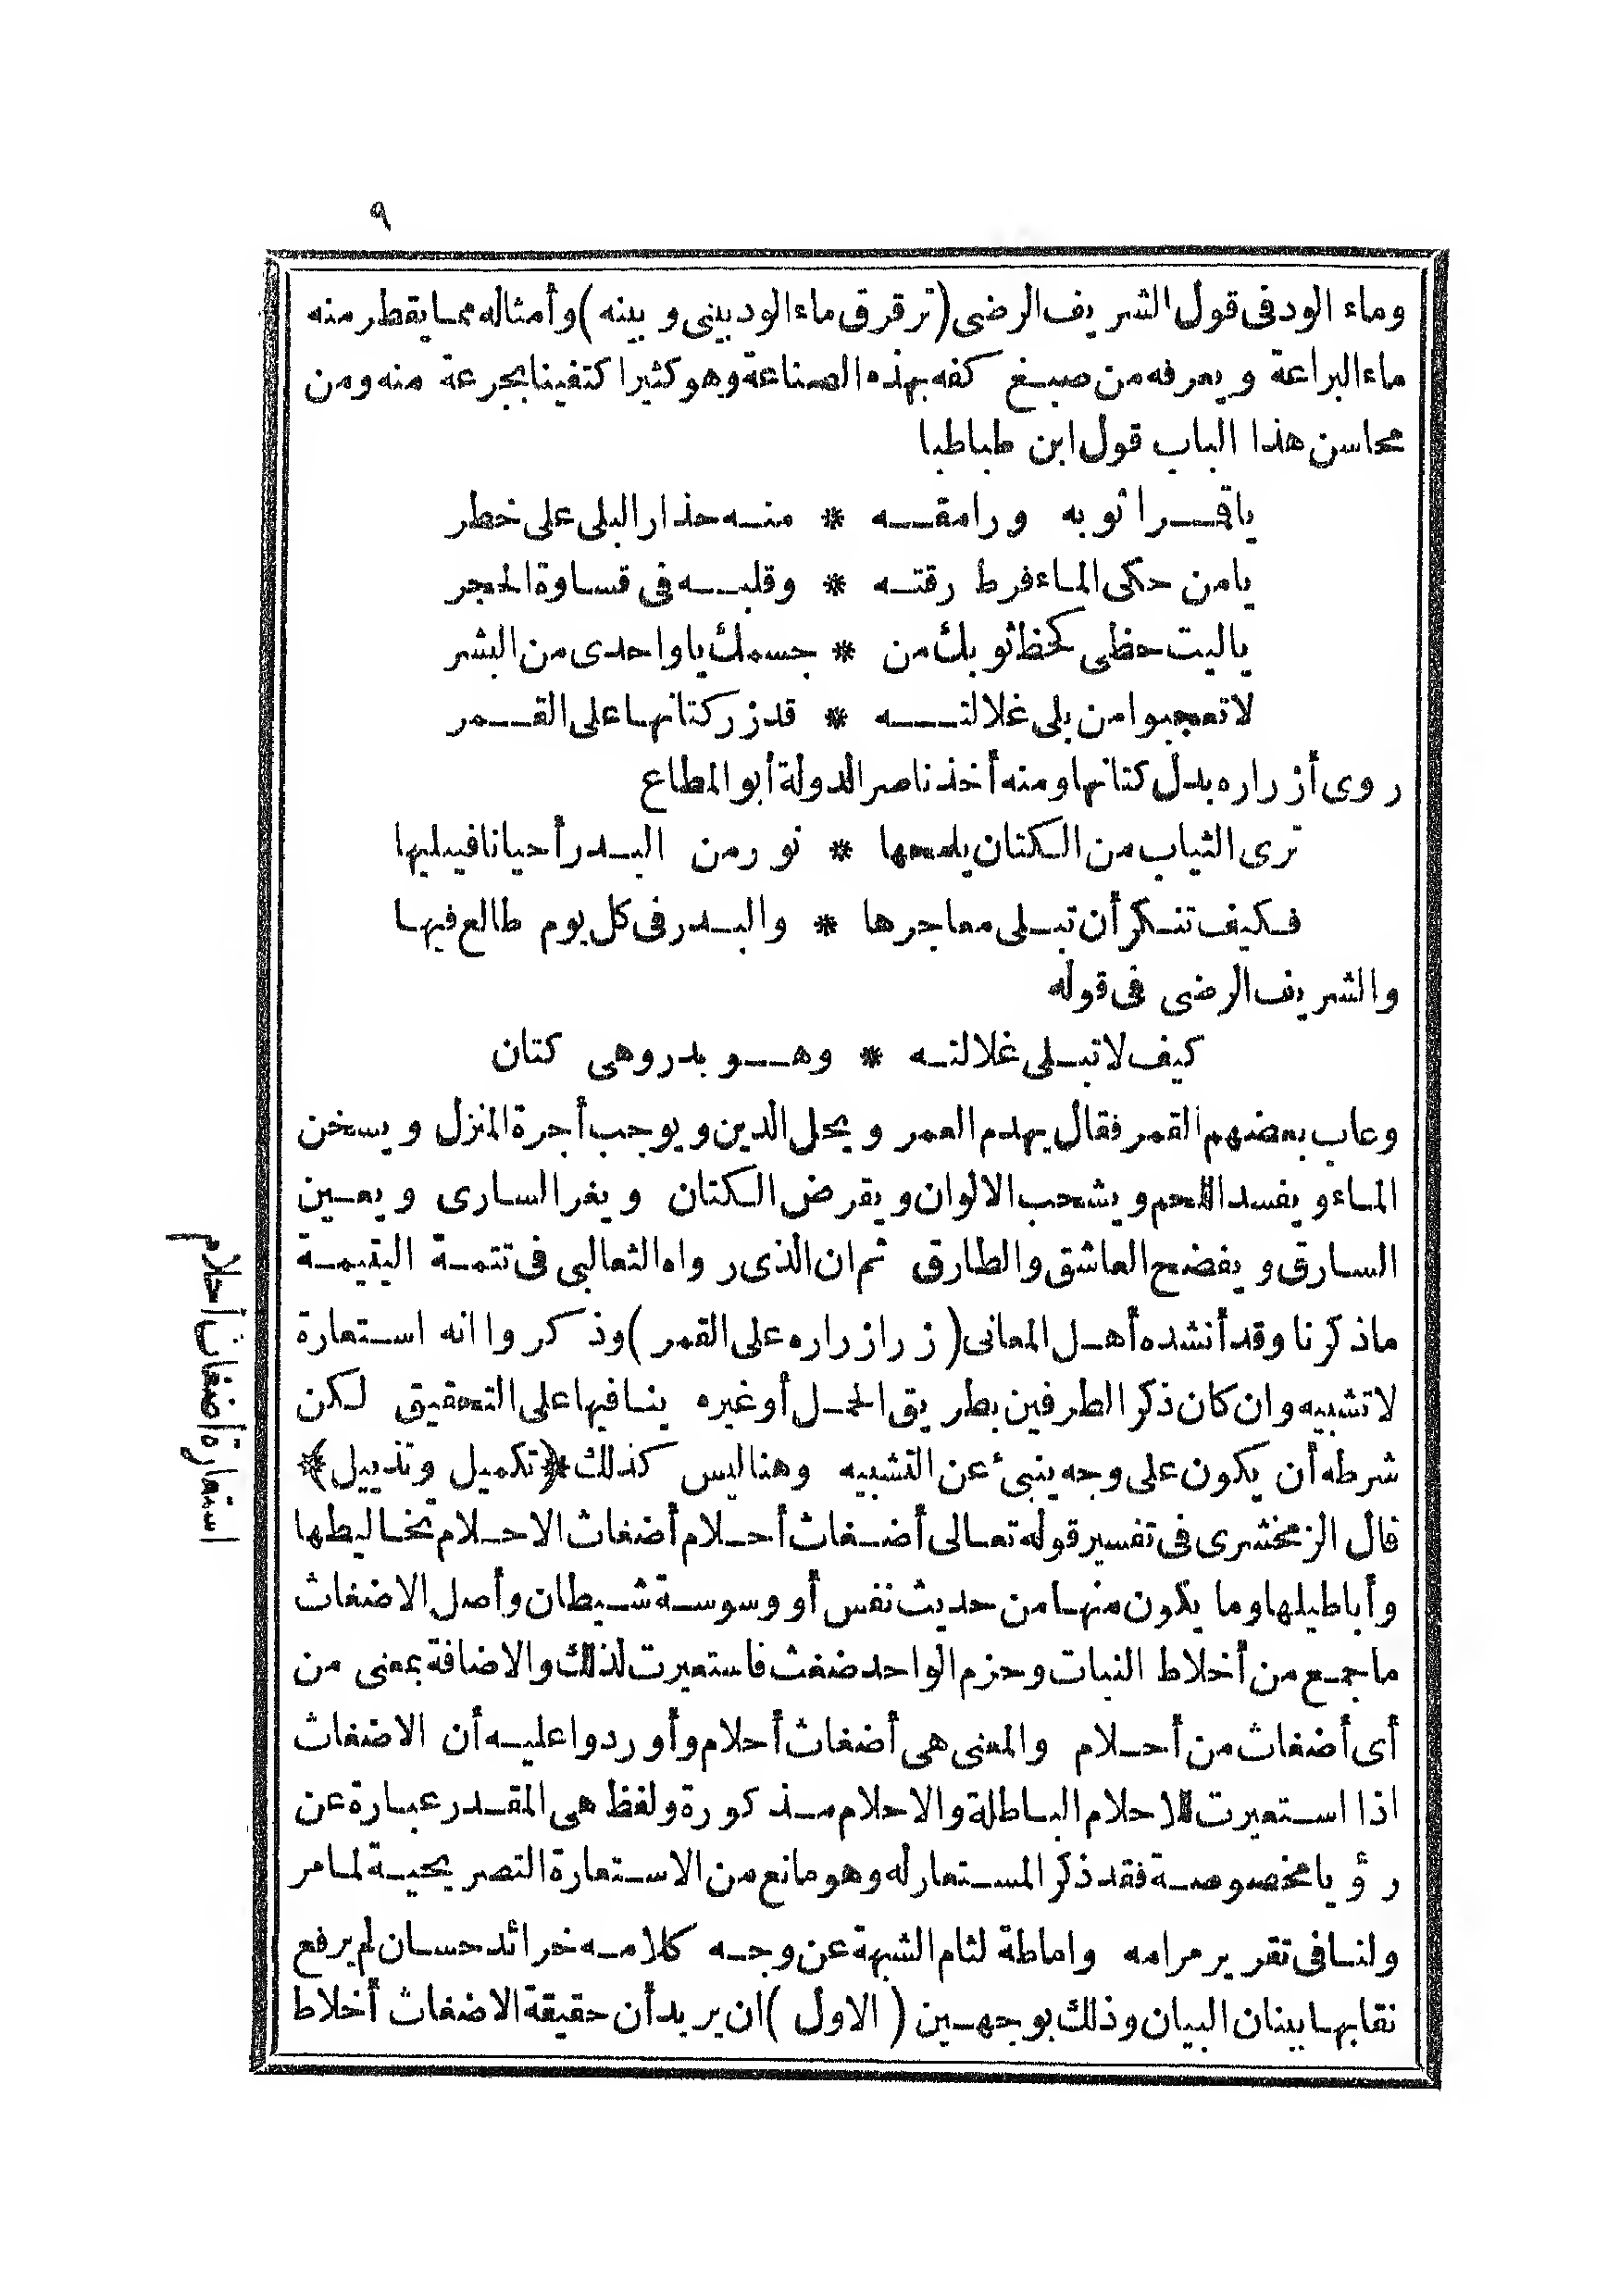 ٩
وماء الود فى قول الشريف الرضى (ترقرق ماء الود بينى وبينه) وأمثاله مما يقطر منه
ماء البراعة ويعرفه من صبغ كفه بهذه الصناعة وهو كثير اكتفينا بجرعة منه ومن
محاسن هذا الباب قول ابن طباطبا
ياقمرا ثوبه ورامقه * منه حذار البلى على خطر
يا من حكى الماء فرط رقته * وقلبه فى قساوة الحجر
ياليت حظى كحظ ثوبك من * جسمك يا واحدى من البشر
لا تعجبوا من بلى غلالته * قد زر كتانها على القمر
روى أزراره بدل كتانها ومنه أخذ ناصر الدولة أبو المطاع
ترى الثياب من الكتان يلمحها * نور من البدر أحيانا فيبليها
فكيف تنكر أن تبلى معاجرها * والبدر فى كل يوم طالع فيها
والشريف الرضى فى قوله
كيف لا تبلى غلالته * وهو بدر وهى كتان
وعاب بعضهم القمر فقال يهدم العمر ويحل الدين ويوجب أجرة المنزل ويسخن
الماء ويفسد اللحم ويشحب الالوان ويقرض الكتان ويغر السارى ويعين
السارق ويفضح العاشق والطارق ثم ان الذى رواه الثعالبى فى تتمة اليتيمة
ما ذكرنا وقد أنشده أهل المعانى (زر ازراره على القمر) وذكروا انه استعارة
لا تشبيه وان كان ذكر الطرفين بطريق الحمل أو غيره ينافيها على التحقيق لكن
شرطه أن يكون على وجه ينبئ عن التشبيه وهنا ليس كذلك *(تكميل وتذييل)*
قال الزمخشرى فى تفسير قوله تعالى أضغاث أحلام أضغاث الاحلام تخاليطها
وأباطيلها وما يكون منها من حديث نفس أو وسوسة شيطان وأصل الاضغاث
ما جمع من أخلاط النبات وحزم الواحد ضغث فاستعيرت لذلك والاضافة بمعنى من
أى أضغاث من أحلام والمعنى هى أضغاث أحلام وأوردوا عليه أن الاضغاث
اذا استعيرت للاحلام الباطلة والاحلام مذكورة ولفظ هى المقدر عبارة عن
رؤيا مخصوصة فقد ذكر المستعار له وهو مانع من الاستعارة التصريحية لما مر
ولنا فى تقرير مرامه واماطة لثام الشبهة عن وجه كلامه خرائد حسان لم يرفع
نقابها بينان البيان وذلك بوجهين (الاول) ان يريد أن حقيقة الاضغاث أخلاط
استعارة أضغاث أحلام